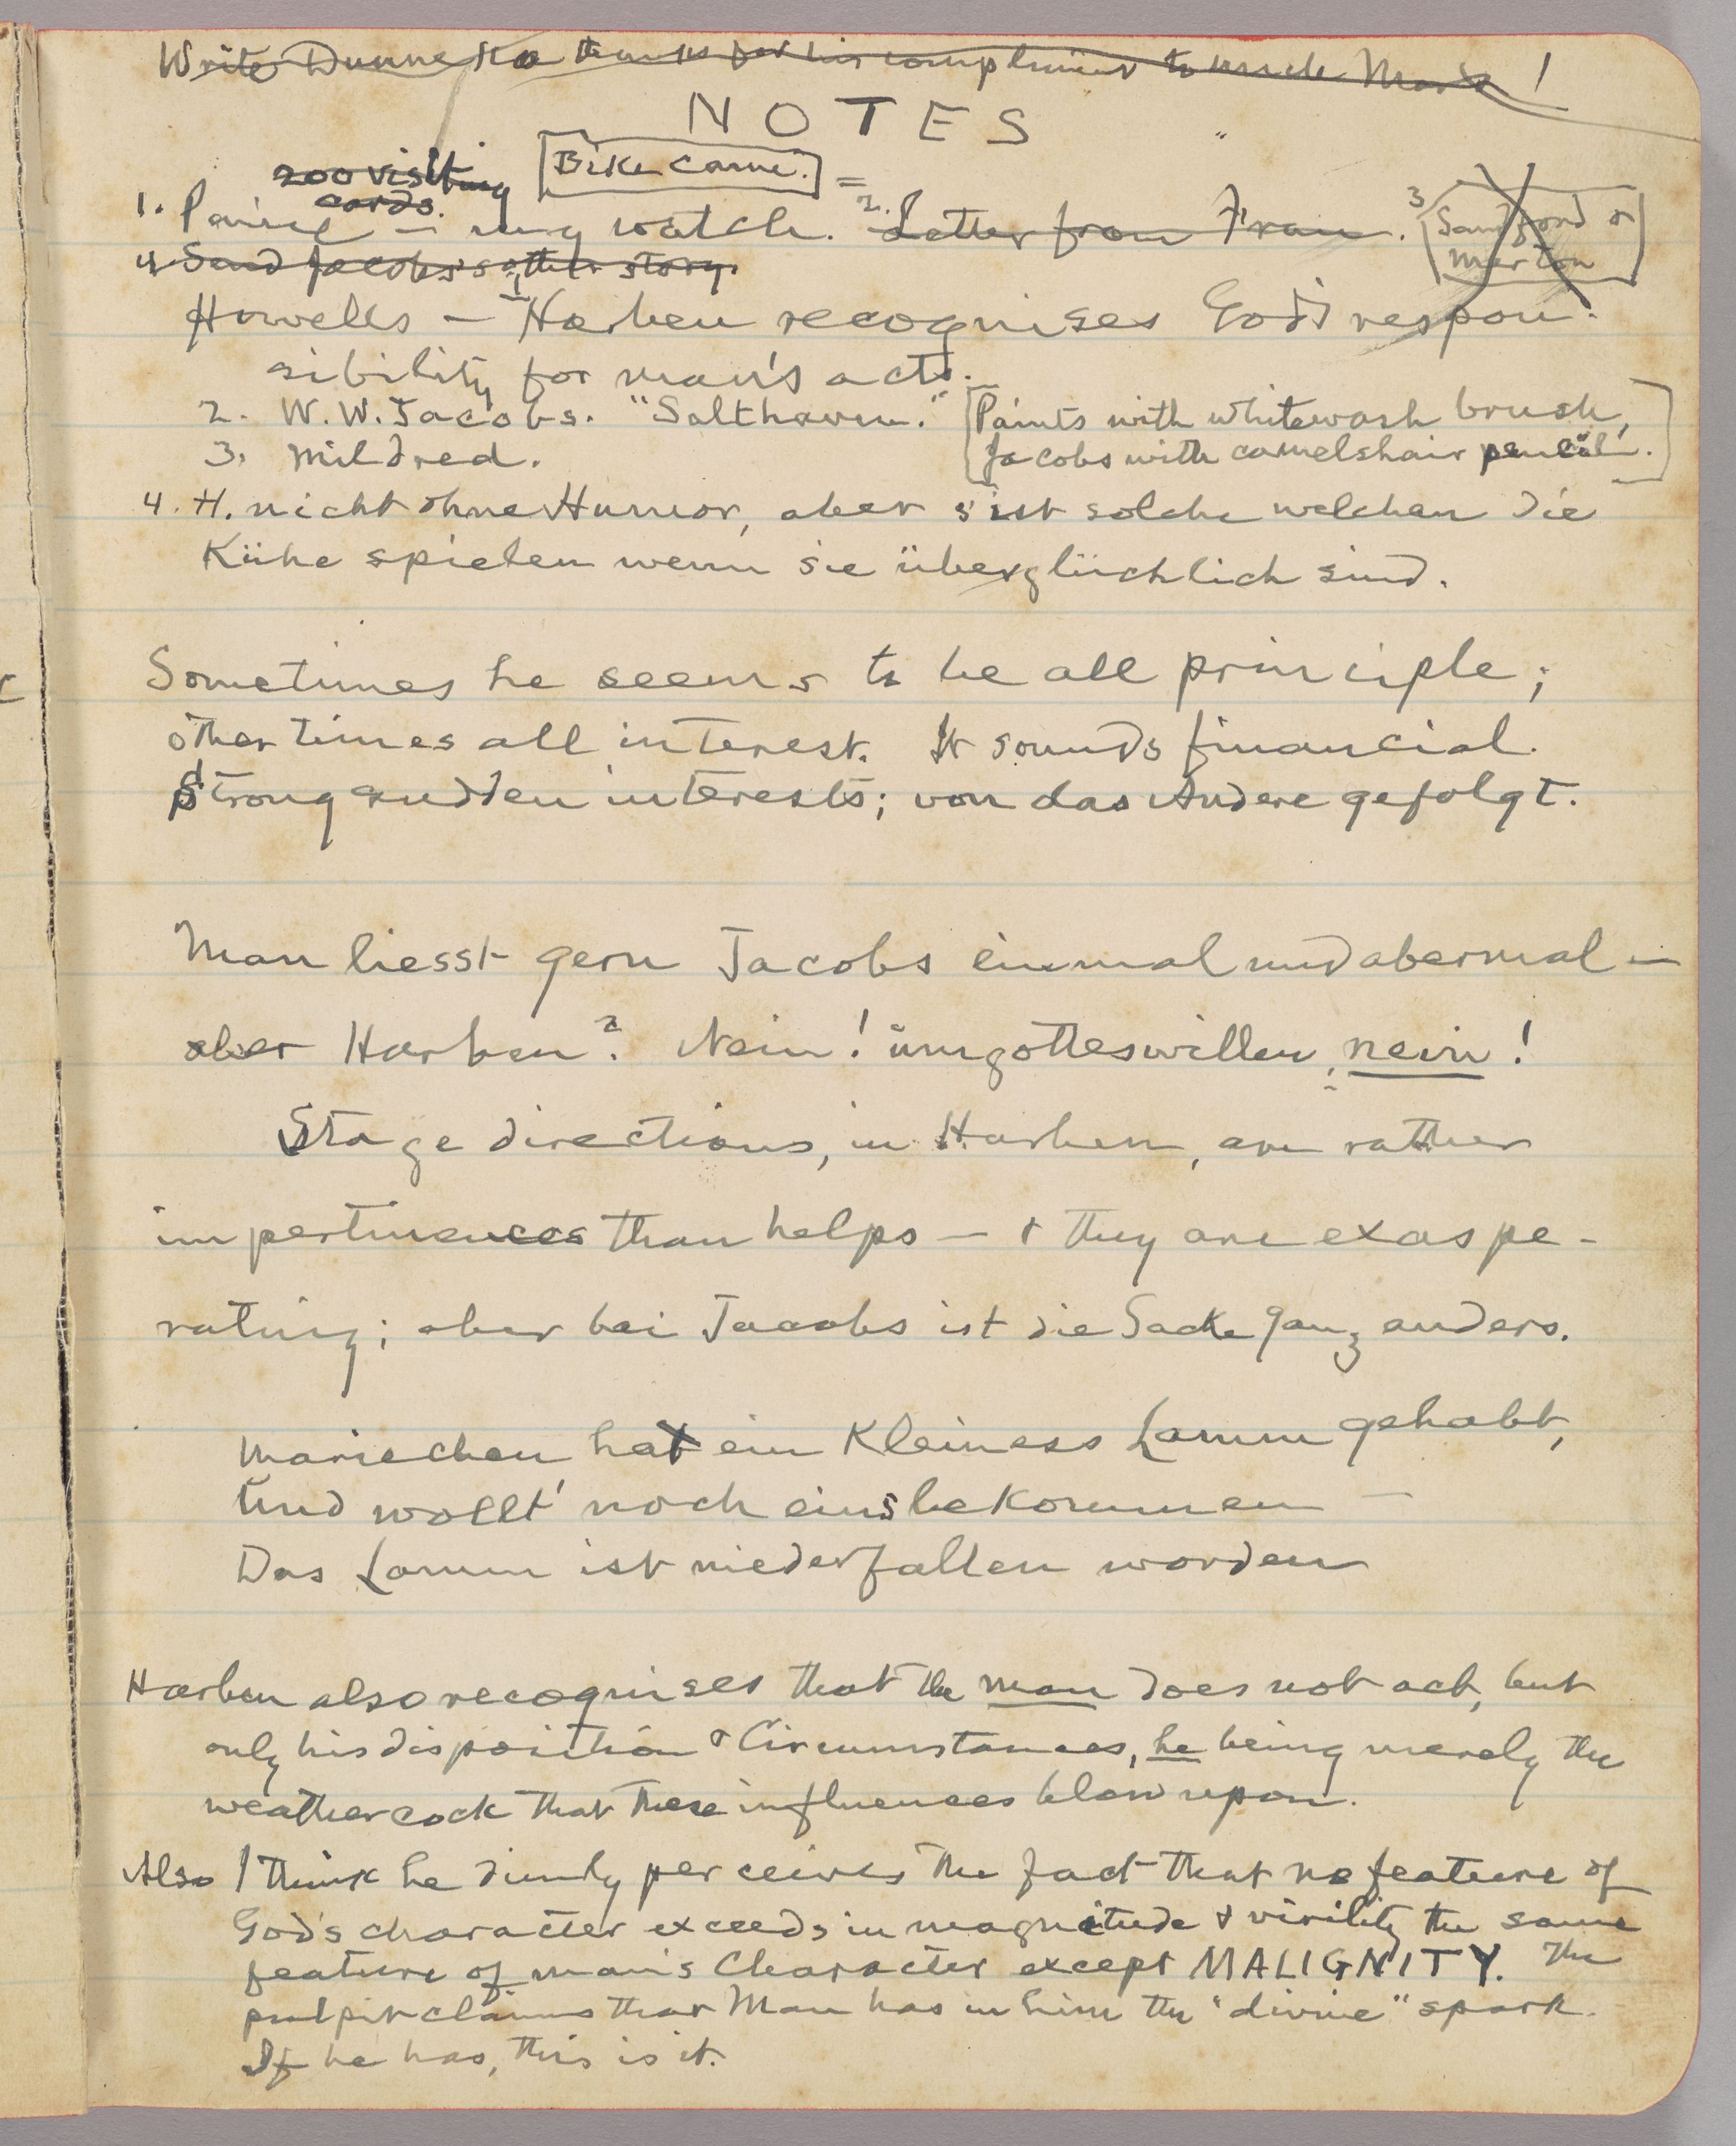 Write Duneka thanks for his compliment to uncle Mark!
NOTES
200 visiting
cards.
Bike came.
1. Paine — my watch. 2. Letter from Fran. 3
Sandford &
Merton
4 Send Jacobs's other story.
Howells — 1 Harben recognises God's respon-
sibility for man's acts.
2. W. W. Jacobs. "Salthaven." [Paints with whitewash brush,
3. Mildred. Jacobs with camelshair pencil.]
4. H. nicht ohne Humor, aber s'ist solche welchen die
Kühe spielen wenn sie überglücklich sind.
Sometimes he seems to be all principle;
other times all interest. It sounds financial.
Strong sudden interests; von das Andere gefolgt.
Man liesst gern Jacobs einmal und abermal —
aber Harben? Nein! ŭmgotteswillen, nein!
Stage directions, in Harben, are rather
impertinences than helps — & they are exaspe-
rating; aber bei Jacobs ist die Sache ganz anders.
Mariechen hat ein Kleiness Lamm gehabt,
Ŭnd wollt' noch eins bekommen —
Das Lamm ist niederfallen worden
Harben also recognises that the man does not act, but
only his disposition & Circumstances, he being merely the
weathercock that these influences blow upon.
Also I think he dimly perceives the fact that no feature of
God's character exceeds in magnitude & virility the same
feature of man's Character except MALIGNITY. The
pulpit claims that Man has in him the "divine" spark.
If he has, this is it.